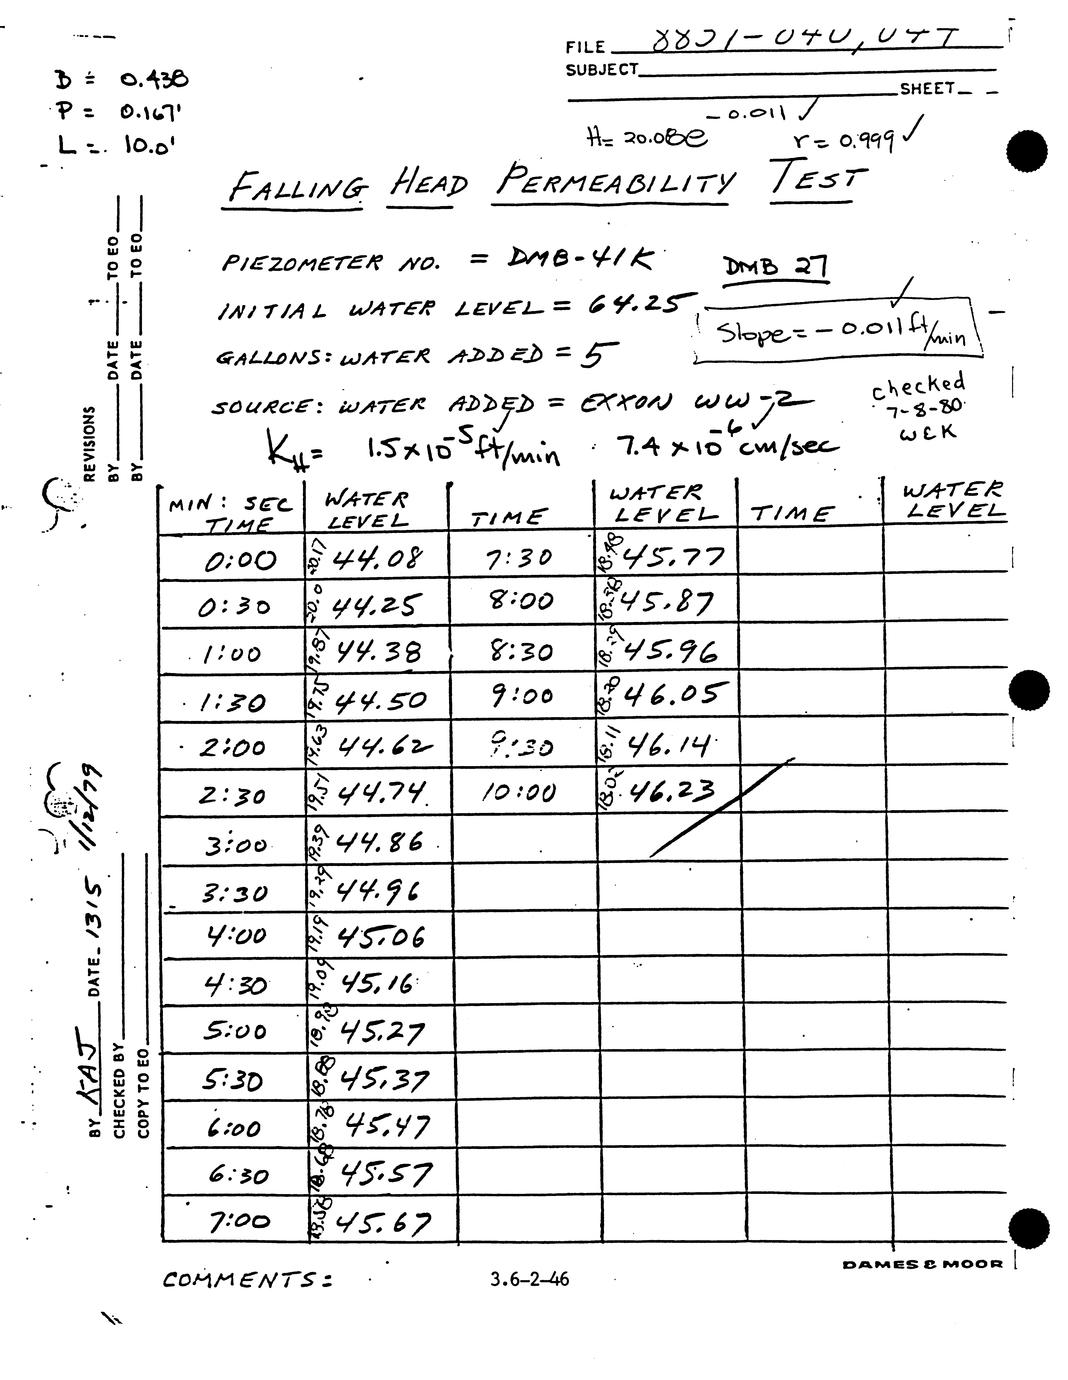 FILE 8821-040, 047
SUBJECT
SHEET
D = 0.438
P = 0.167'
L = 10.0'
H= 20.08e -0.011 ✓
r = 0.999 ✓
FALLING HEAD PERMEABILITY TEST
PIEZOMETER NO. = DMB-41K DMB 27
INITIAL WATER LEVEL = 64.25
Slope = -0.011 ft/min ✓
GALLONS: WATER ADDED = 5
SOURCE: WATER ADDED = EXXON WW-2
checked
7-8-80
WEK
KH = 1.5 x 10-5 ft/min 7.4 x 10-6 cm/sec
MIN: SEC TIME WATER LEVEL TIME WATER LEVEL TIME WATER LEVEL
0:00 20.17 44.08 7:30 18.48 45.77
0:30 20.0 44.25 8:00 18.38 45.87
1:00 19.87 44.38 8:30 18.29 45.96
1:30 19.75 44.50 9:00 18.20 46.05
2:00 19.63 44.62 9:30 18.11 46.14
2:30 19.51 44.74 10:00 18.02 46.23
3:00 19.39 44.86
3:30 19.29 44.96
4:00 19.19 45.06
4:30 19.09 45.16
5:00 18.98 45.27
5:30 18.88 45.37
6:00 18.78 45.47
6:30 18.68 45.57
7:00 18.58 45.67
COMMENTS:
3.6-2-46
DAMES & MOOR
REVISIONS
BY DATE TO EO
BY DATE TO EO
BY KAJ DATE 1315 1/12/79
CHECKED BY
COPY TO EO